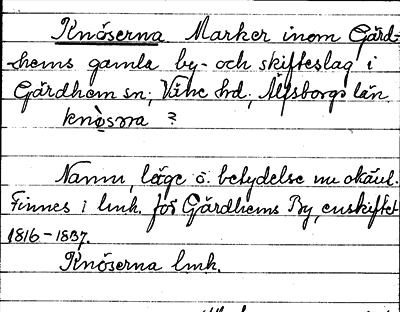 Knöserna. Marker inom Gärd-
hems gamla by- och skifteslag i
Gärdhem sn; Väne hd, Älfsborgs län.
knòsɳa ?
Namn, läge o. betydelse nu okänd.
Finnes i lmh. för Gärdhems By, enskiftet
1816-1837.
Knöserna lmh.